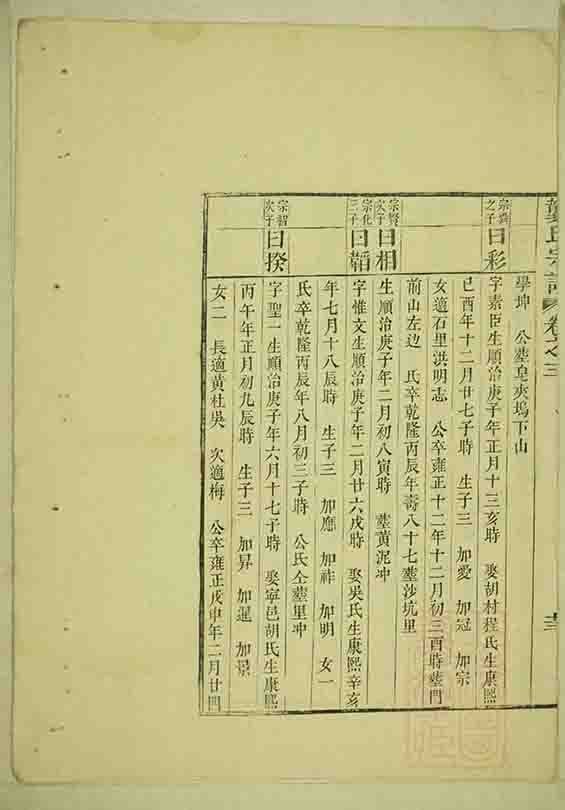 氏宗譜 卷之三
學坤 公墓皂夾塢下山
宗 之子 曰彩 字素臣生順治庚子年正月十三亥時 娶胡村程氏生康熙
己酉年十二月廿七子時 生子三 加愛 加冠 加宗
女適石里洪明志 公卒雍正十二年十二月初三酉時墓門
前山左边 氏卒乾隆丙辰年壽八十七墓沙坑里
宗賢次子 曰相 生順治庚子年二月初八寅時 墓黃泥冲
宗化三子 曰韜 字惟文生順治庚子年二月廿六戌時 娶吳氏生康熙辛亥
年七月十八辰時 生子三 加應 加祚 加明 女一
氏卒乾隆丙辰年八月初三子時 公氏仝墓里冲
宗智次子 曰揆 字聖一生順治庚子年六月十七子時 娶寧邑胡氏生康熙
丙午年正月初九辰時 生子三 加昇 加暹 加景
女二 長適黃杜吳 次適梅 公卒雍正戊申年二月廿